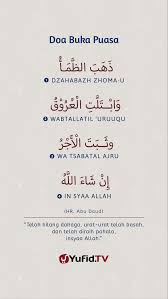 Doa Buka Puasa
ذَهَبَ الظَّمَأُ
1 DZAHABAZH ZHOMA-U
وَابْتَلَّتِ الْعُرُوْقُ
2 WABTALLATIL 'URUUQU
وَثَبَتَ الْأَجْرُ
3 WA TSABATAL AJRU
إِنْ شَاءَ اللَّهُ
4 IN SYAA ALLAH
(HR. Abu Daud)
"Telah hilang dahaga, urat-urat telah basah,
dan telah diraih pahala,
insyaa Allah."
YUFID.TV